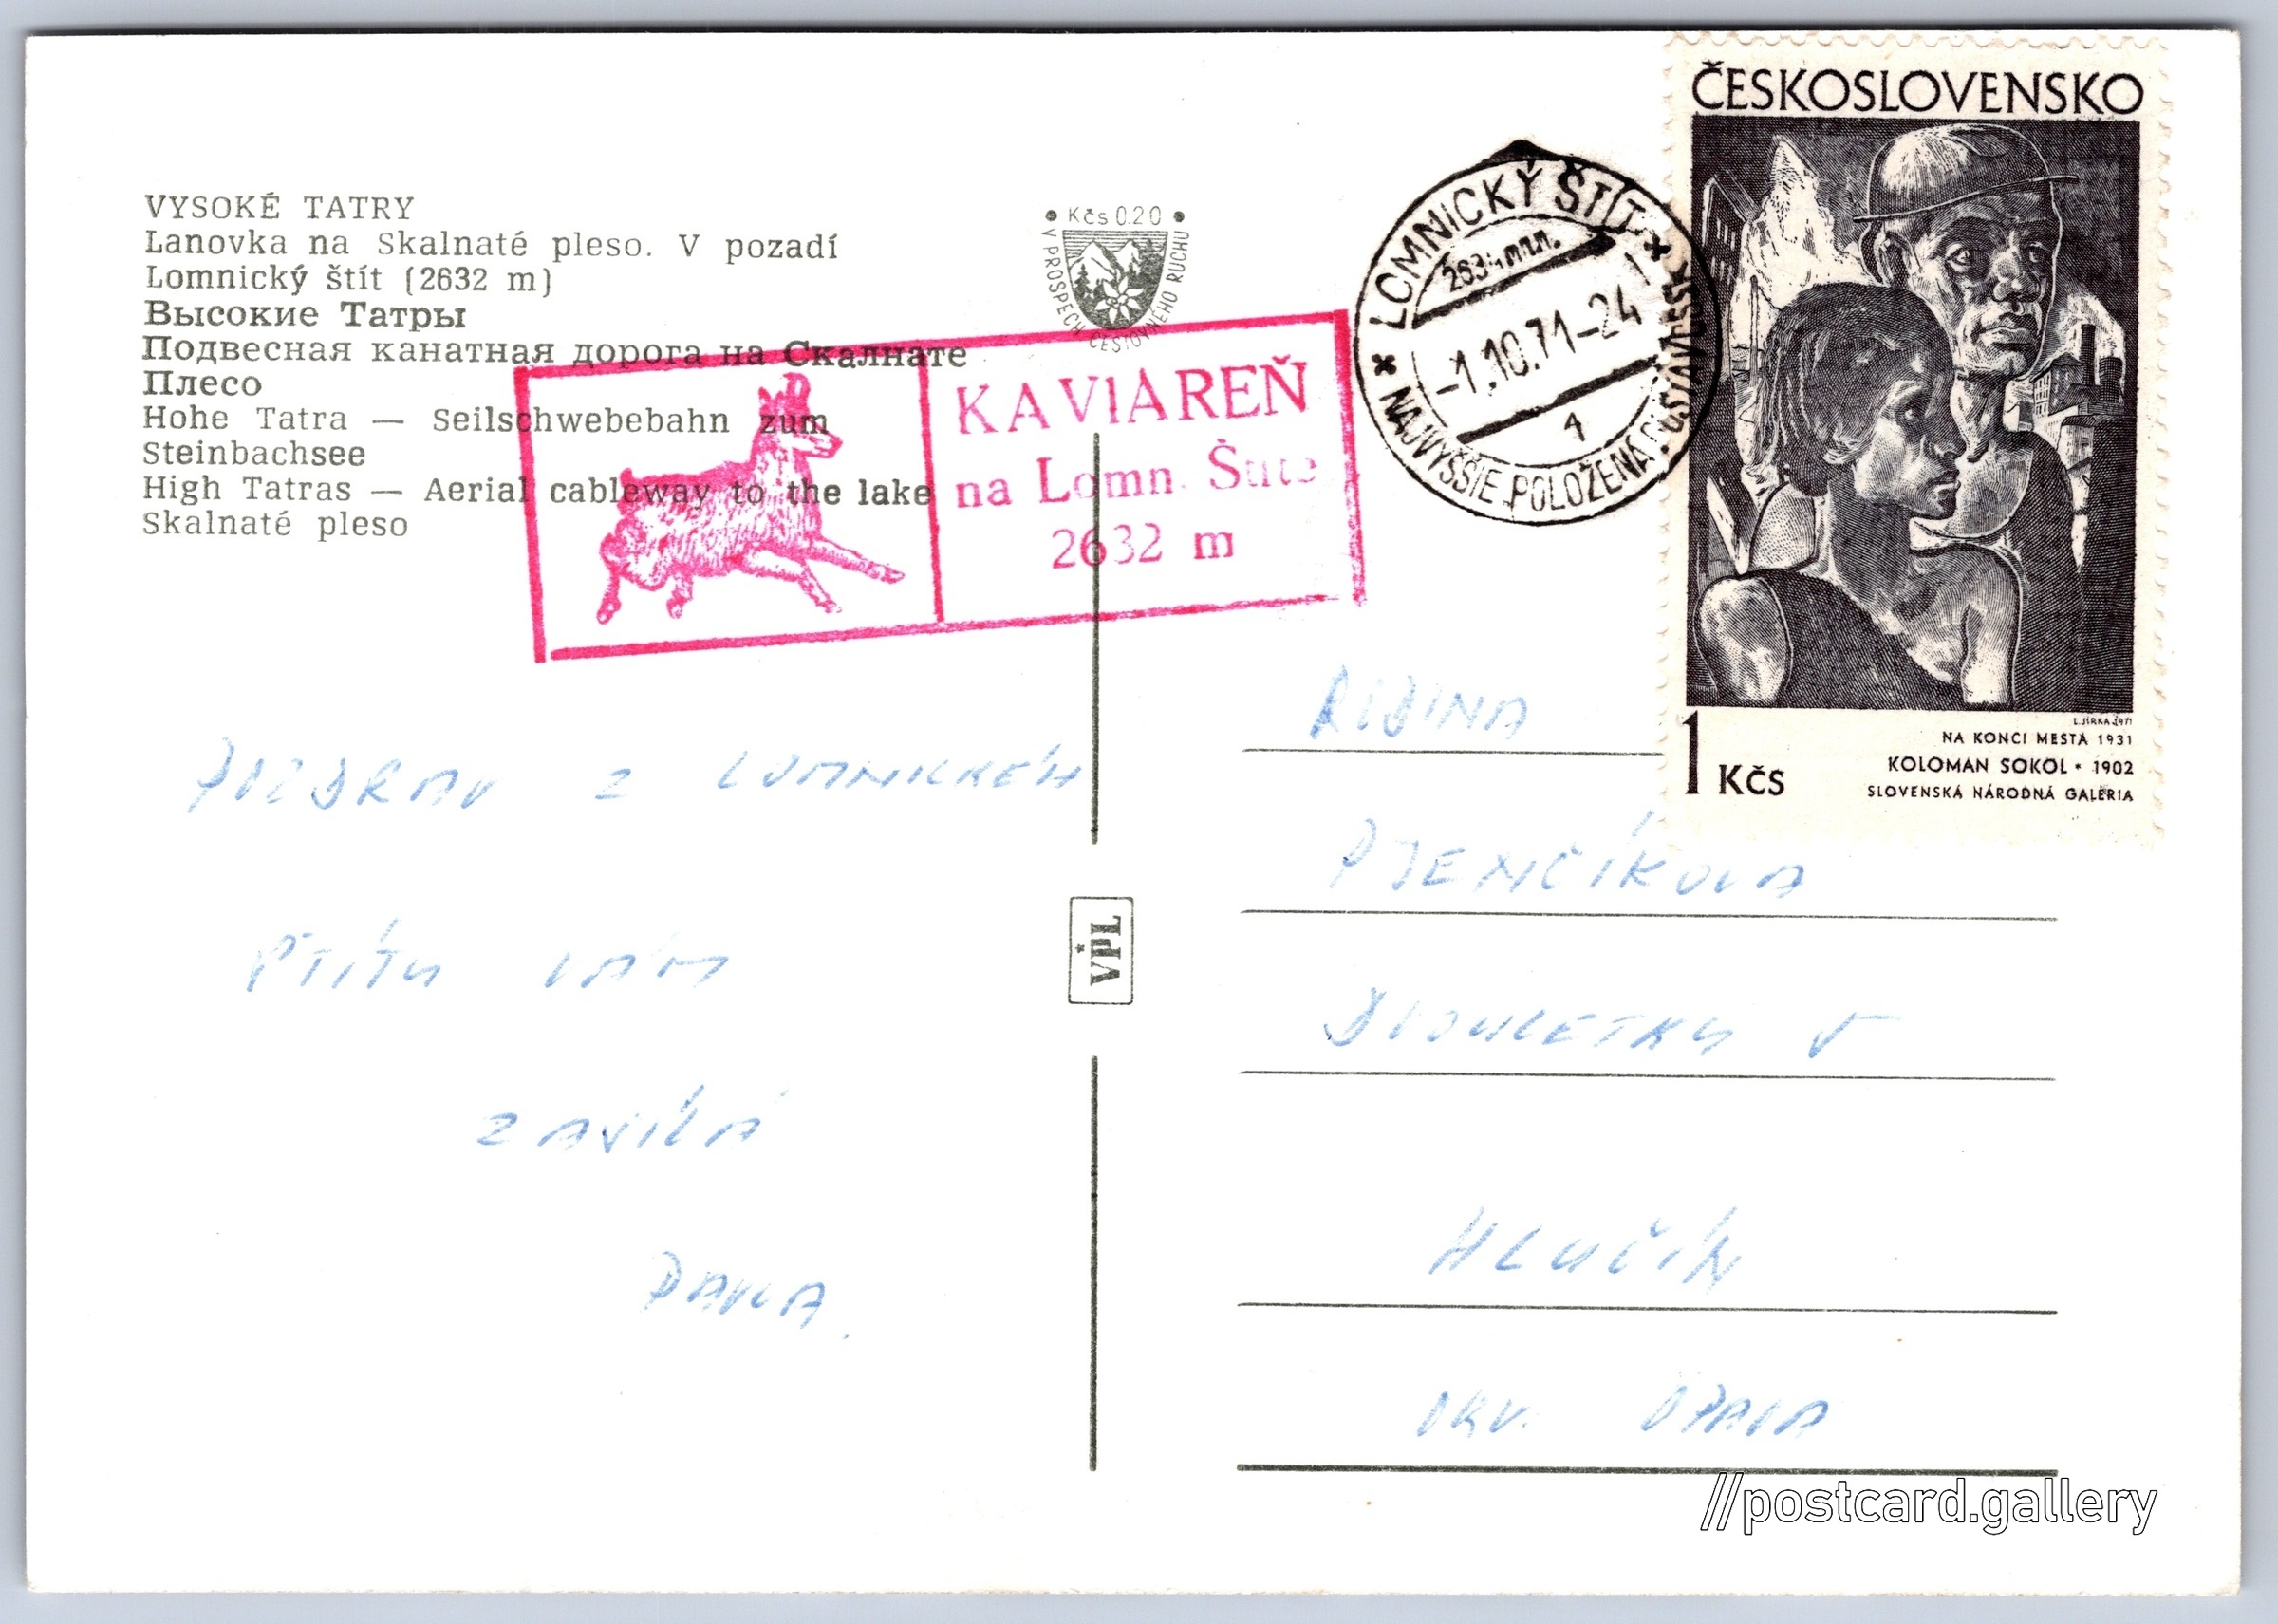 VYSOKÉ TATRY
Lanovka na Skalnaté pleso. V pozadí
Lomnický štít (2632 m)
Высокие Татры
Подвесная канатная дорога на Скалнате
Плесо
Hohe Tatra — Seilschwebebahn zum
Steinbachsee
High Tatras — Aerial cableway to the lake
Skalnaté pleso
Kčs 0.20
V PROSPECH CESTOVNÉHO RUCHU
KAVIAREŇ
na Lomn. Štíte
2632 m
LOMNICKÝ ŠTÍT
-1.10.71-24
1
NAJVYŠŠIE POLOŽENÁ
ČESKOSLOVENSKO
L.JIRKA 1971
NA KONCI MESTA 1931
1 KČS
KOLOMAN SOKOL * 1902
SLOVENSKÁ NÁRODNÁ GALÉRIA
POZDRAV Z LOMNICKÉH
ŠTÍTU VÁM
ZASÍLÁ
PAVLA.
VPL
RODINA
HLUČÍN
OKR. OPAVA
//postcard.gallery